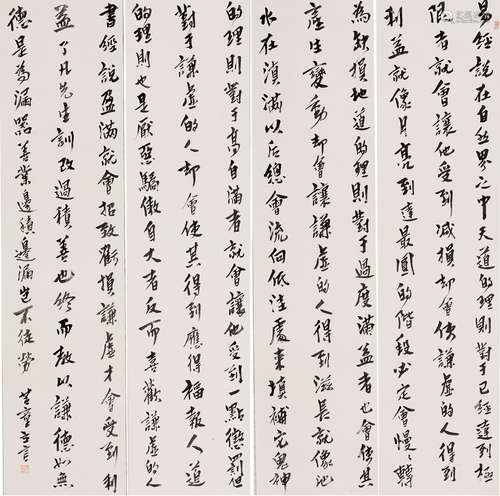 易經說在自然界之中天道的理則對于達到極
限者就會讓他受到减損却會使謙虛的人得到
利益就像月亮到達最圓的階段必定會慢慢轉
為缺損地道的理則對于過度滿益者也會使其
產生變動却會讓謙虛的人得到滋長就像池
水在滿以后總會流向低洼處来填補它鬼神
的理則對于高自滿者就會讓他受到一點懲罰但
對于謙虛的人却會使其得到應得福報人道
的理則也是厭惡驕傲自大者反而喜歡謙虛的人
書經說盈滿就會招致虧損謙虛才會受到利
益了凡先生訓改過積善也終而教以謙德如無
德是為漏器善業邊積邊漏豈不徒勞